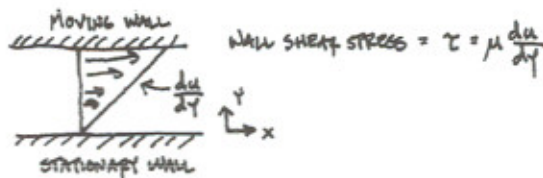 MOVING WALL
WALL SHEAR STRESS = τ = μ du/dy
du/dy
Y
X
STATIONARY WALL